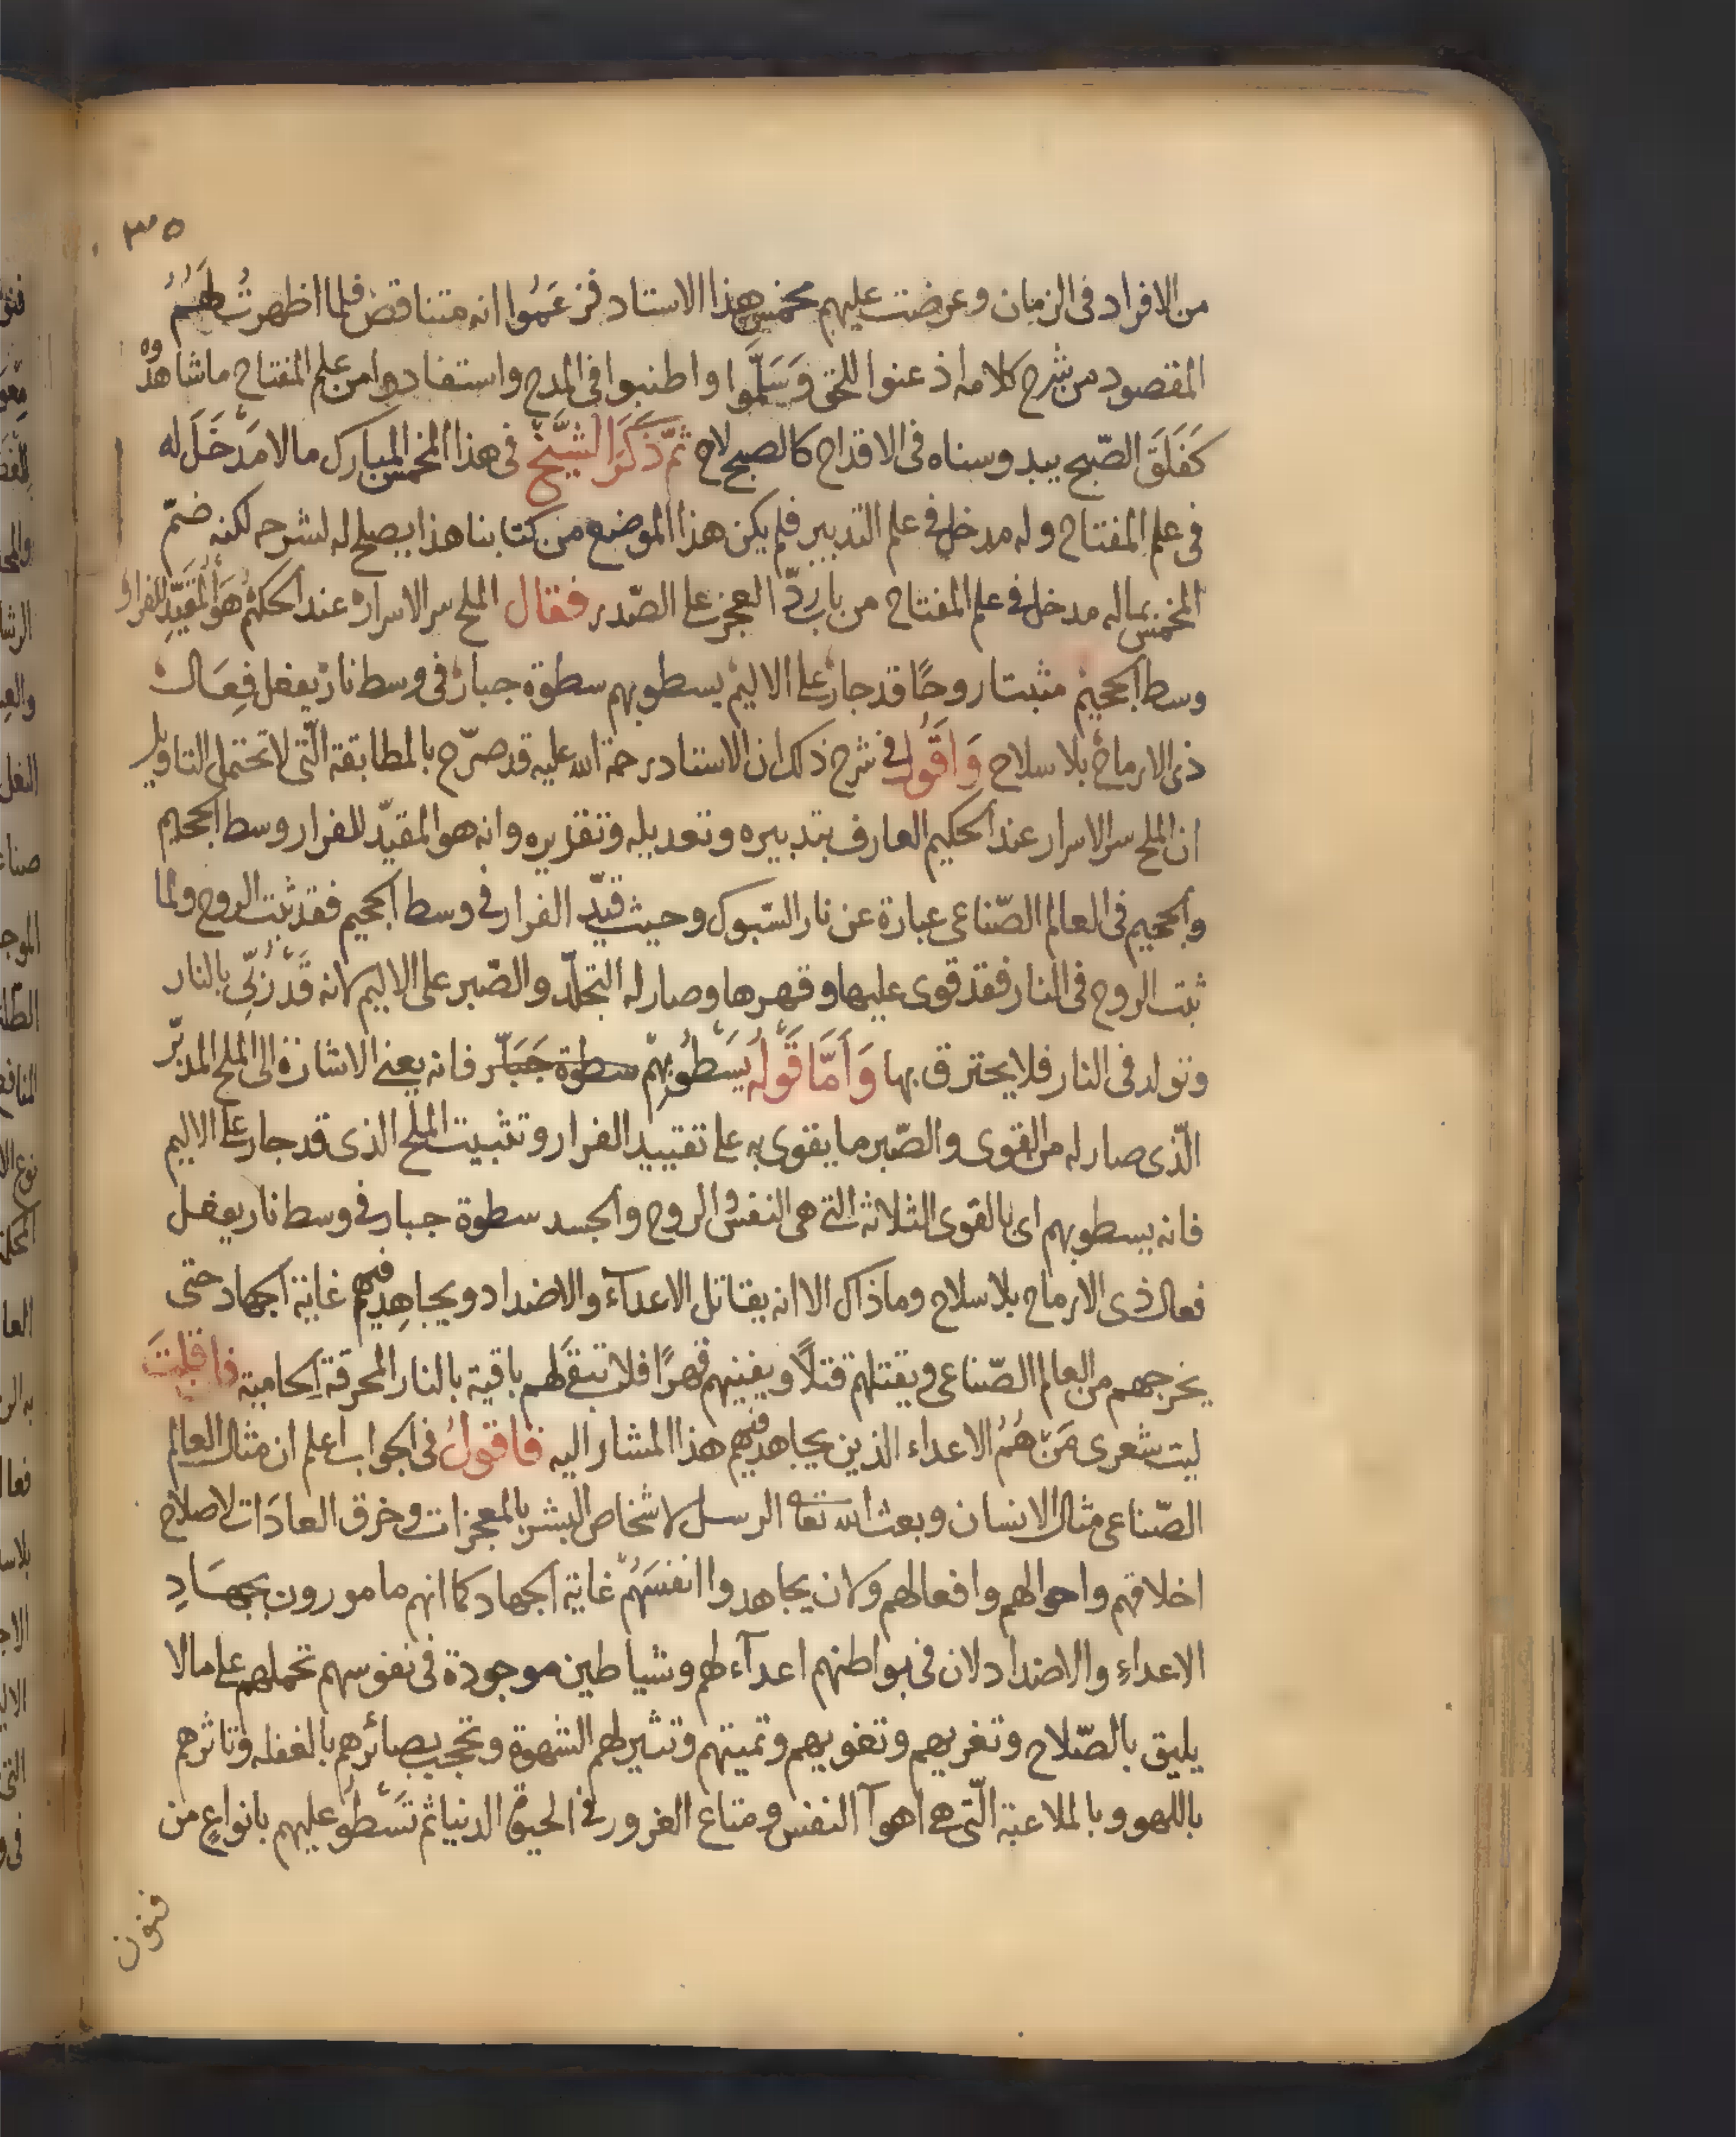 ٣٥
من الافراد فى الزمان وعرضت عليهم مخمس هذا الاستاد فزعَمُوا انه متناقض فلما اظهرتُ لهُم
المقصود من شرح كلامه اذعنوا للحق وَسَلّموا واطنبوا فى المدح واستفادوا من علم المفتاح ما شاهدوه
كَفَلَقَ الصّبح يبدو سناه فى الاقداح كالصبح لاح ثمّ ذَكَرَ الشَّيْخُ فى هذا المخمس المبارك ما لا مَدْخَلَ له
فى علم المفتاح وله مدخل فى علم التدبير فلم يكن هذا الموضع من كتابنا هذا يصلح له لشرحه لكنه ضمّ
المخمس بماله مدخل فى علم المفتاح من باب ردّ العجز على الصّدر فقال الملح سر الاسرار عند الحكيم هوَ المُقَيِّد للفرار
وسط الجحيم مثبتا روحًا قد جار على الاليم يسطو بهم سطوة جبار فى وسط نار يفعل فِعَال
ذى الارماح بلا سلاح وَاَقُولُ فى شرح ذلك ان الاستاد رحمة الله عليه قد صرّح بالمطابقة الّتى لا تحتمل التاويل
ان الملح سر الاسرار عند الحكيم العارف بتدبيره وتعديله وتقزيره وانه هو المقيّد للفرار وسط الجحيم
والجحيم فى العالم الصّناعى عبارة عن نار السّبوك وحيث قيّد الفرار فى وسط الجحيم فقد ثبت الروح ولما
ثبت الروح فى النار فقد قوى عليها وقهرها وصار له التجلّد والصّبر على الاليم لانه قَدْ رُبِّى بالنار
وتولد فى النار فلا يحترق بها وَاَمَّا قَولُه يَسْطُو بِهِمْ سطوة جَبَّار فانه يعنى الاشارة الى الملح المدبّر
الّذى صار له من القوى والصّبر ما يقوى به على تقييد الفرار وتثبيت الملح الذى قد جار على الاليم
فانه يسطو بهم اى بالقوى الثلاثه التى هى النفس والروح والجسد سطوة جبار فى وسط نار يفعل
فعال ذى الارماح بلا سلاح وما ذاك الا انه يقاتل الاعدآء والاضداد ويجاهِد فيهم غاية الجهاد حتى
يخرجهم من العالم الصّناعى ويقتلهم قتلًا ويفنيهم قهرًا فلا تبقى لهم باقية بالنار المحرقة الحامية فان قلتَ
ليت شعرى مَنْ هُمُ الاعداء الذين يجاهد فيهم هذا المشار اليه فاقولُ فى الجواب اعلم ان مثال العالم
الصّناعى مثال الانسان وبعث الله تعا الرسل لاشخاص البشر بالمعجزات وخرق العادَات لاصلاح
اخلاقهم واحوالهم وافعالهم ولان يجاهدوا انفسَهُمْ غاية الجهاد كما انهم مامورون بجهَادِ
الاعداءِ والاضداد لان فى بواطنهم اعدآء لهم وشياطين موجودة فى نفوسهم تحملهم على ما لا
يليق بالصّلاح وتغريهم وتغويهم وتميتهم وتثير لهم الشهوة وتحجب بصائرهم بالغفله وتاثرهم
باللهو وبالملاعبة الّتى هى اهوآ النفس ومتاع الغرور فى الحيوة الدنيا ثم تَسْطُو عليهم بانواعٍ من
فنون